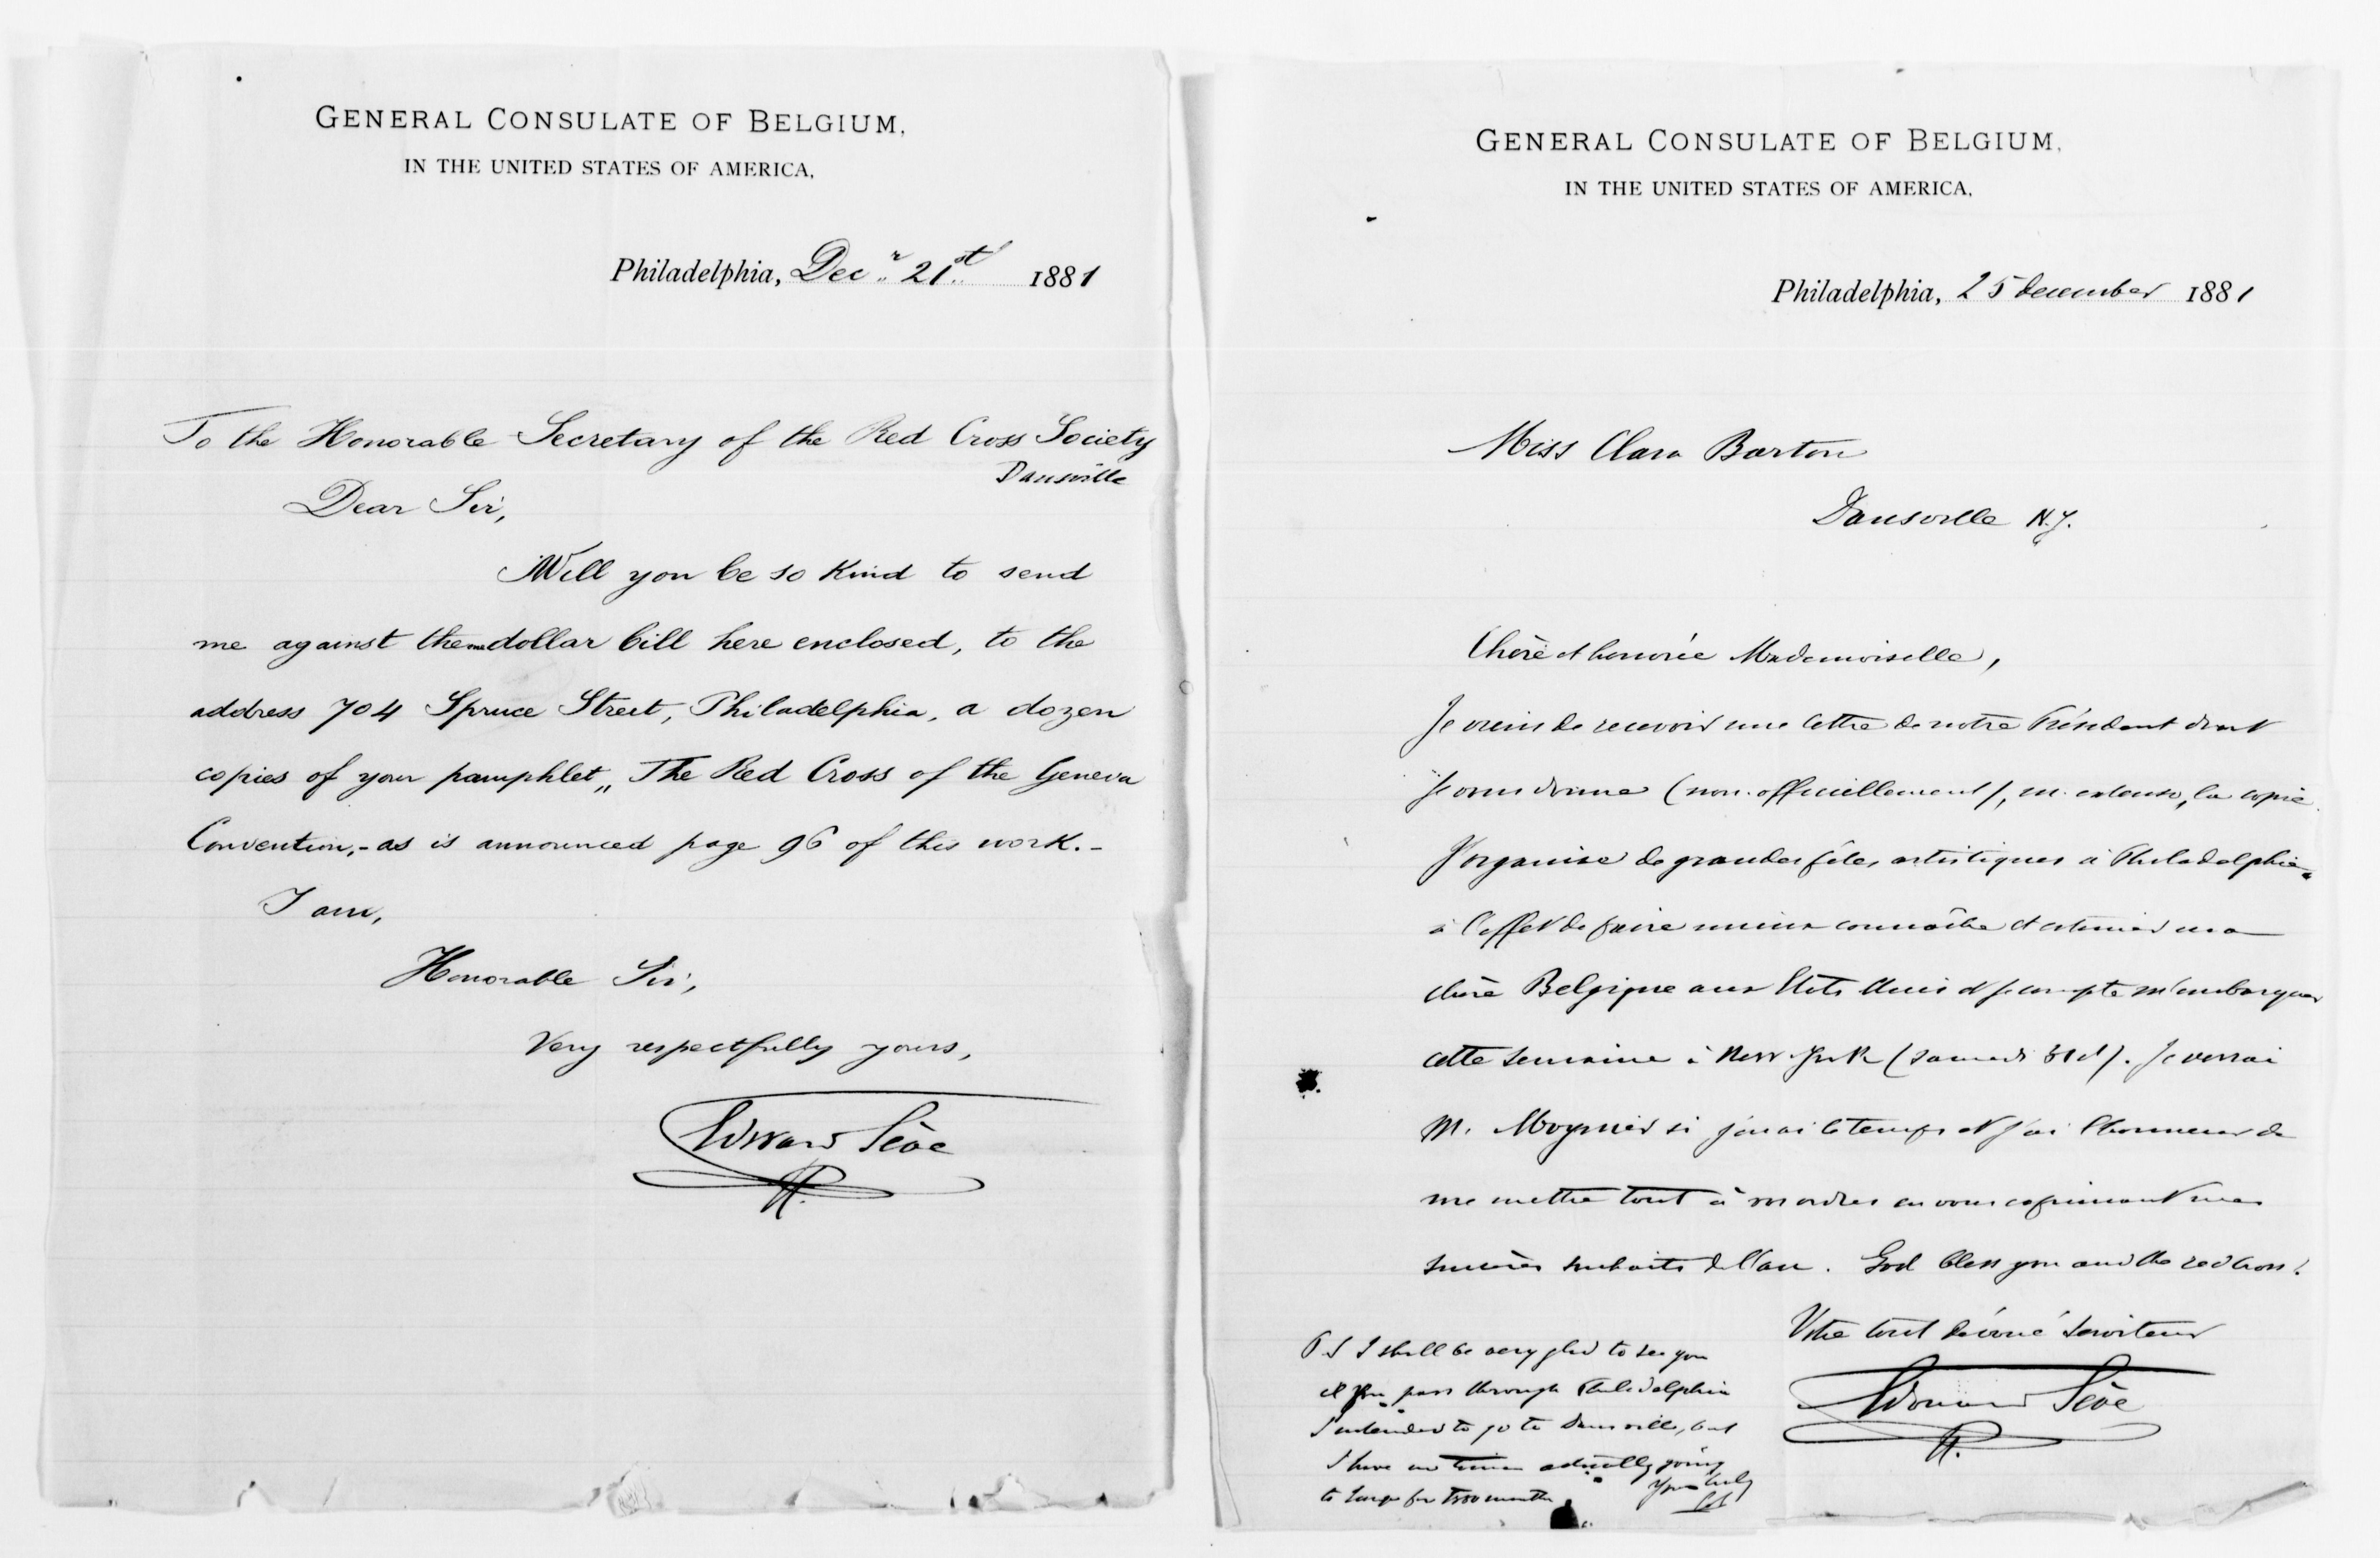 GENERAL CONSULATE OF BELGIUM,
IN THE UNITED STATES OF AMERICA,
Philadelphia, Decr 21st 1881
To the Honorable Secretary of the Red Cross Society
Dansville
Dear Sir,
Will you be so kind to send
me against the one dollar bill here enclosed, to the
address 704 Spruce Street, Philadelphia, a dozen
copies of your pamphlet „The Red Cross of the Geneva
Convention,- as is announced page 96 of this work.-
I am,
Honorable Sir,
Very respectfully yours,
Edouard Sève
GENERAL CONSULATE OF BELGIUM,
IN THE UNITED STATES OF AMERICA,
Philadelphia, 25 december 1881
Miss Clara Barton
Dansville N.Y.
Chère et honorée Mademoiselle,
Je viens de recevoir une lettre de notre Président dont
je vous donne (non officiellement), in extenso, la copie.
J'organise de grandes fêtes artistiques à Philadelphie
à l'effet de faire mieux connaître et estimer ma
chère Belgique aux Etats Unis et je compte m'embarquer
cette semaine à New-York (samedi 31 ct). Je verrai
M. Moynier si j'en ai le temps et j'ai l'honneur de
me mettre tout à vos ordres en vous exprimant mes
sincères souhaits de l'an. God bless you and the red Cross!
Votre tout dévoué serviteur
Edouard Sève
P.S I shall be very glad to see you
if you pass through Philadelphia
I intended to go to Dansville, but
I have no time actually going
to Europe for two months
Yours truly